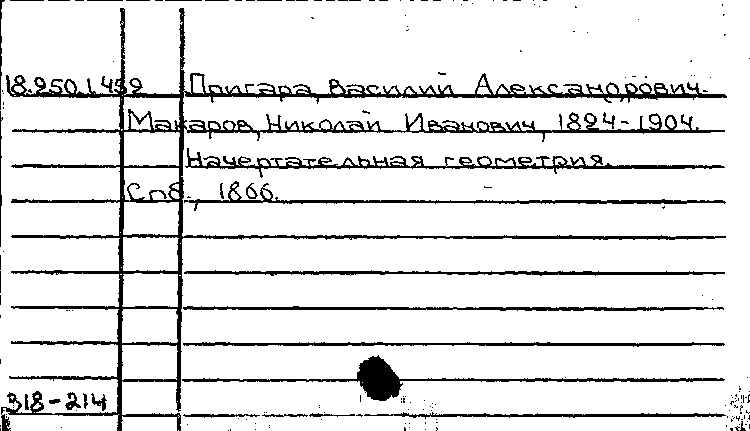 18.250.1.452 Пригара, Василий Александрович.
Макаров, Николай Иванович, 1824-1904.
Начертательная геометрия.
Спб., 1866.
318-214